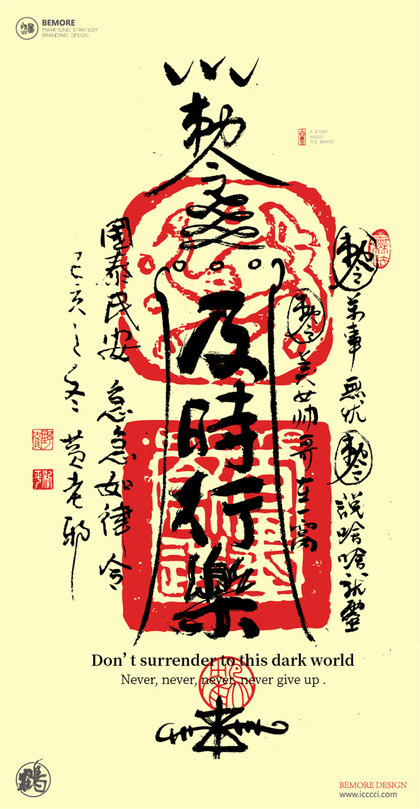 BEMORE
MARKETING STRATEGY
BRANDING DESIGN
A STORY
ABOUT
THE BRAND
敕令
及時行樂
敕令 萬事無忧
敕令 說啥啥就靈
敕令 美女帅哥在一窩
國泰民安 急急如律令
己亥之冬 黄老邪
Don't surrender to this dark world
Never, never, never, never give up .
鶴
BEMORE DESIGN
www.icccci.com